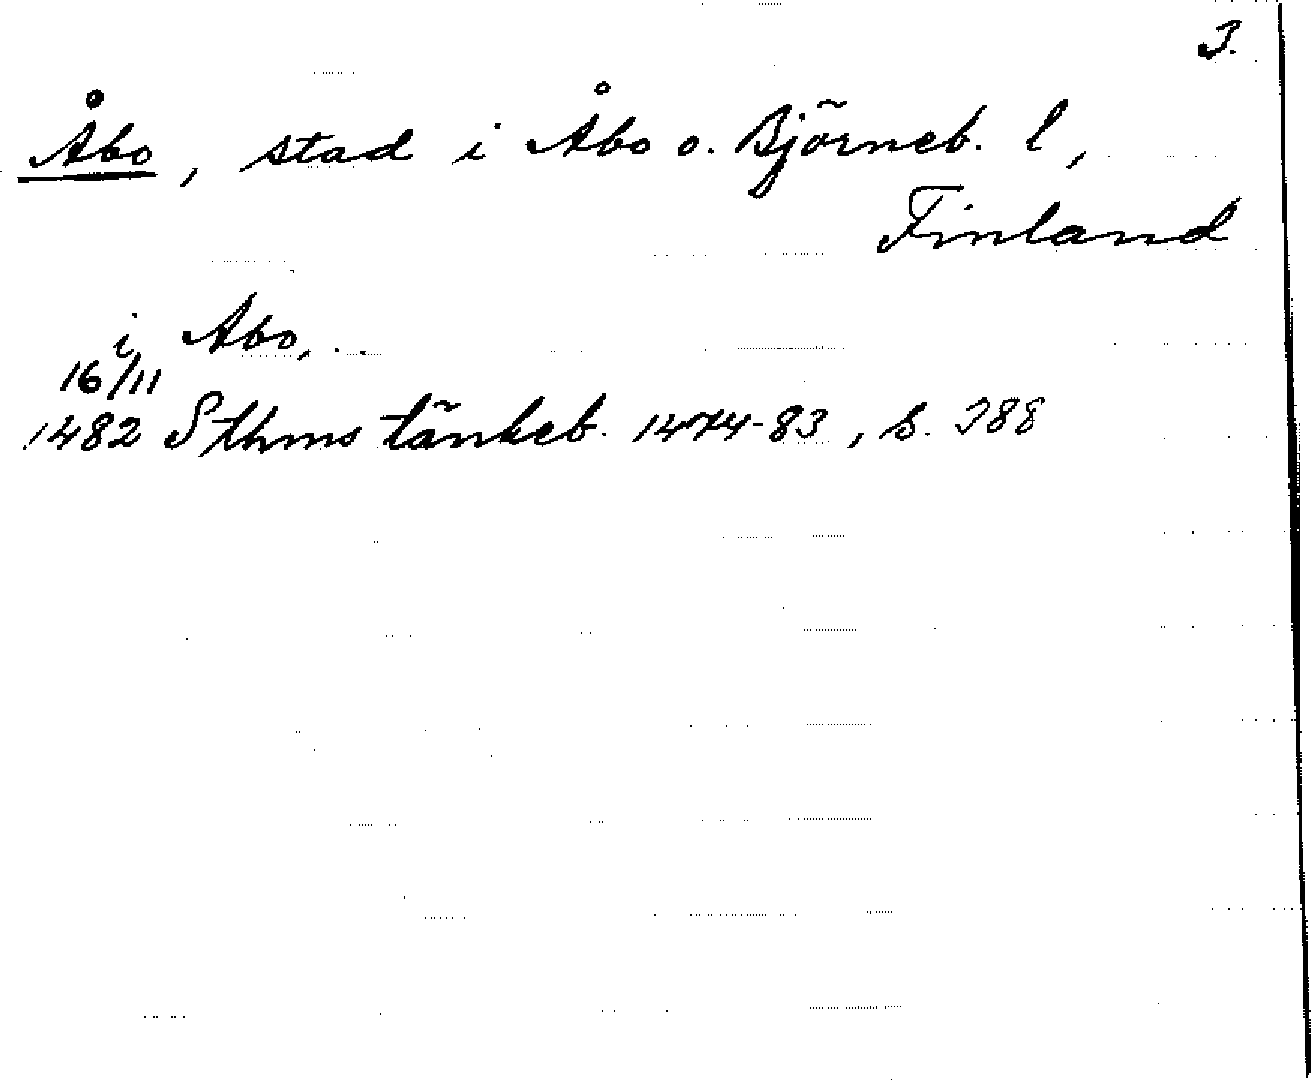 3.
Åbo, stad i Åbo o. Björneb. l,
Finland
i Abo, . .
16/11
1482 Sthms tänkeb. 1474-83, s. 388